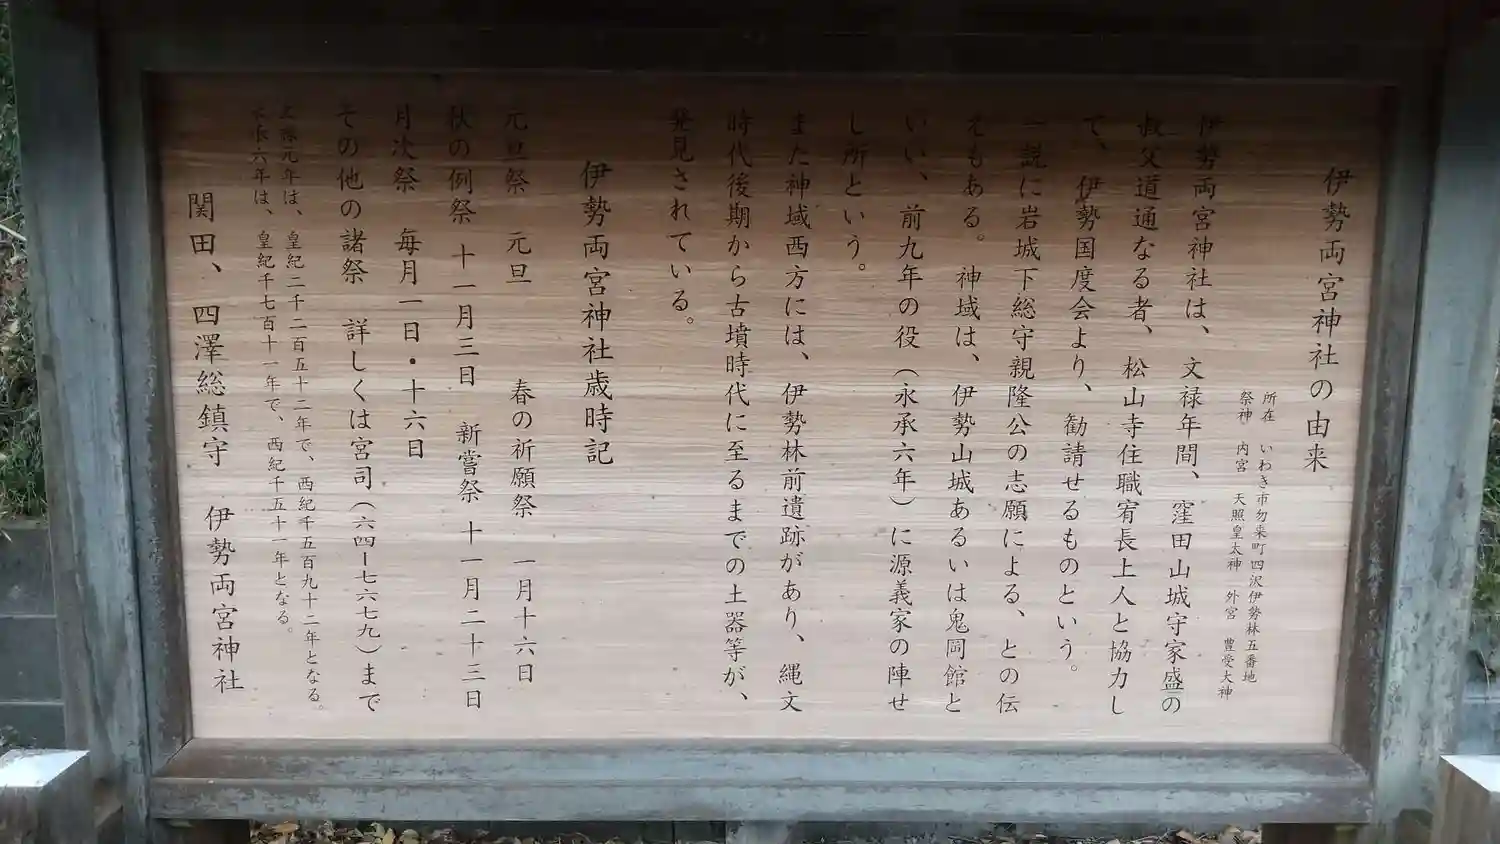 伊勢両宮神社の由来
所在　いわき市勿来町四沢伊勢林五番地
祭神　内宮　天照皇太神　外宮　豊受大神
伊勢両宮神社は、文禄年間、窪田山城守家盛の
叔父道通なる者、松山寺住職宥長上人と協力し
て、伊勢国度会より、勧請せるものという。
一説に岩城下総守親隆公の志願による、との伝
えもある。神域は、伊勢山城あるいは鬼岡館と
いい、前九年の役（永承六年）に源義家の陣せ
し所という。
また神域西方には、伊勢林前遺跡があり、縄文
時代後期から古墳時代に至るまでの土器等が、
発見されている。
伊勢両宮神社歳時記
元旦祭　元旦　春の祈願祭　一月十六日
秋の例祭　十一月三日　新嘗祭　十一月二十三日
月次祭　毎月一日・十六日
その他の諸祭　詳しくは宮司（六四ー七六七九）まで
文禄元年は、皇紀二千二百五十二年で、西紀千五百九十二年となる。
永承六年は、皇紀千七百十一年で、西紀千五十一年となる。
関田、四澤総鎮守　伊勢両宮神社